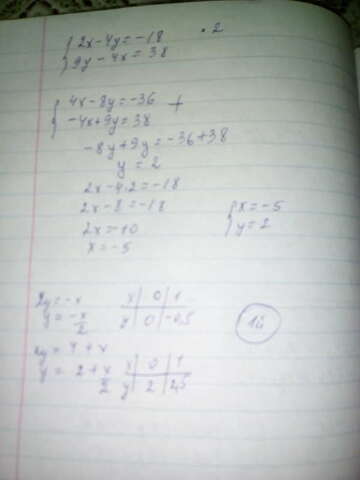 {2x-4y=-18 · 2
{9y-4x=38
{4x-8y=-36 +
{-4x+9y=38
-8y+9y=-36+38
y=2
2x-4·2=-18
2x-8=-18
2x=-10
x=-5
{x=-5
{y=2
2y=-x
y=-x/2
x | 0 | 1
y | 0 | -0,5
12
y=2+x/2
x | 0 | 1
y | 2 | 2,5